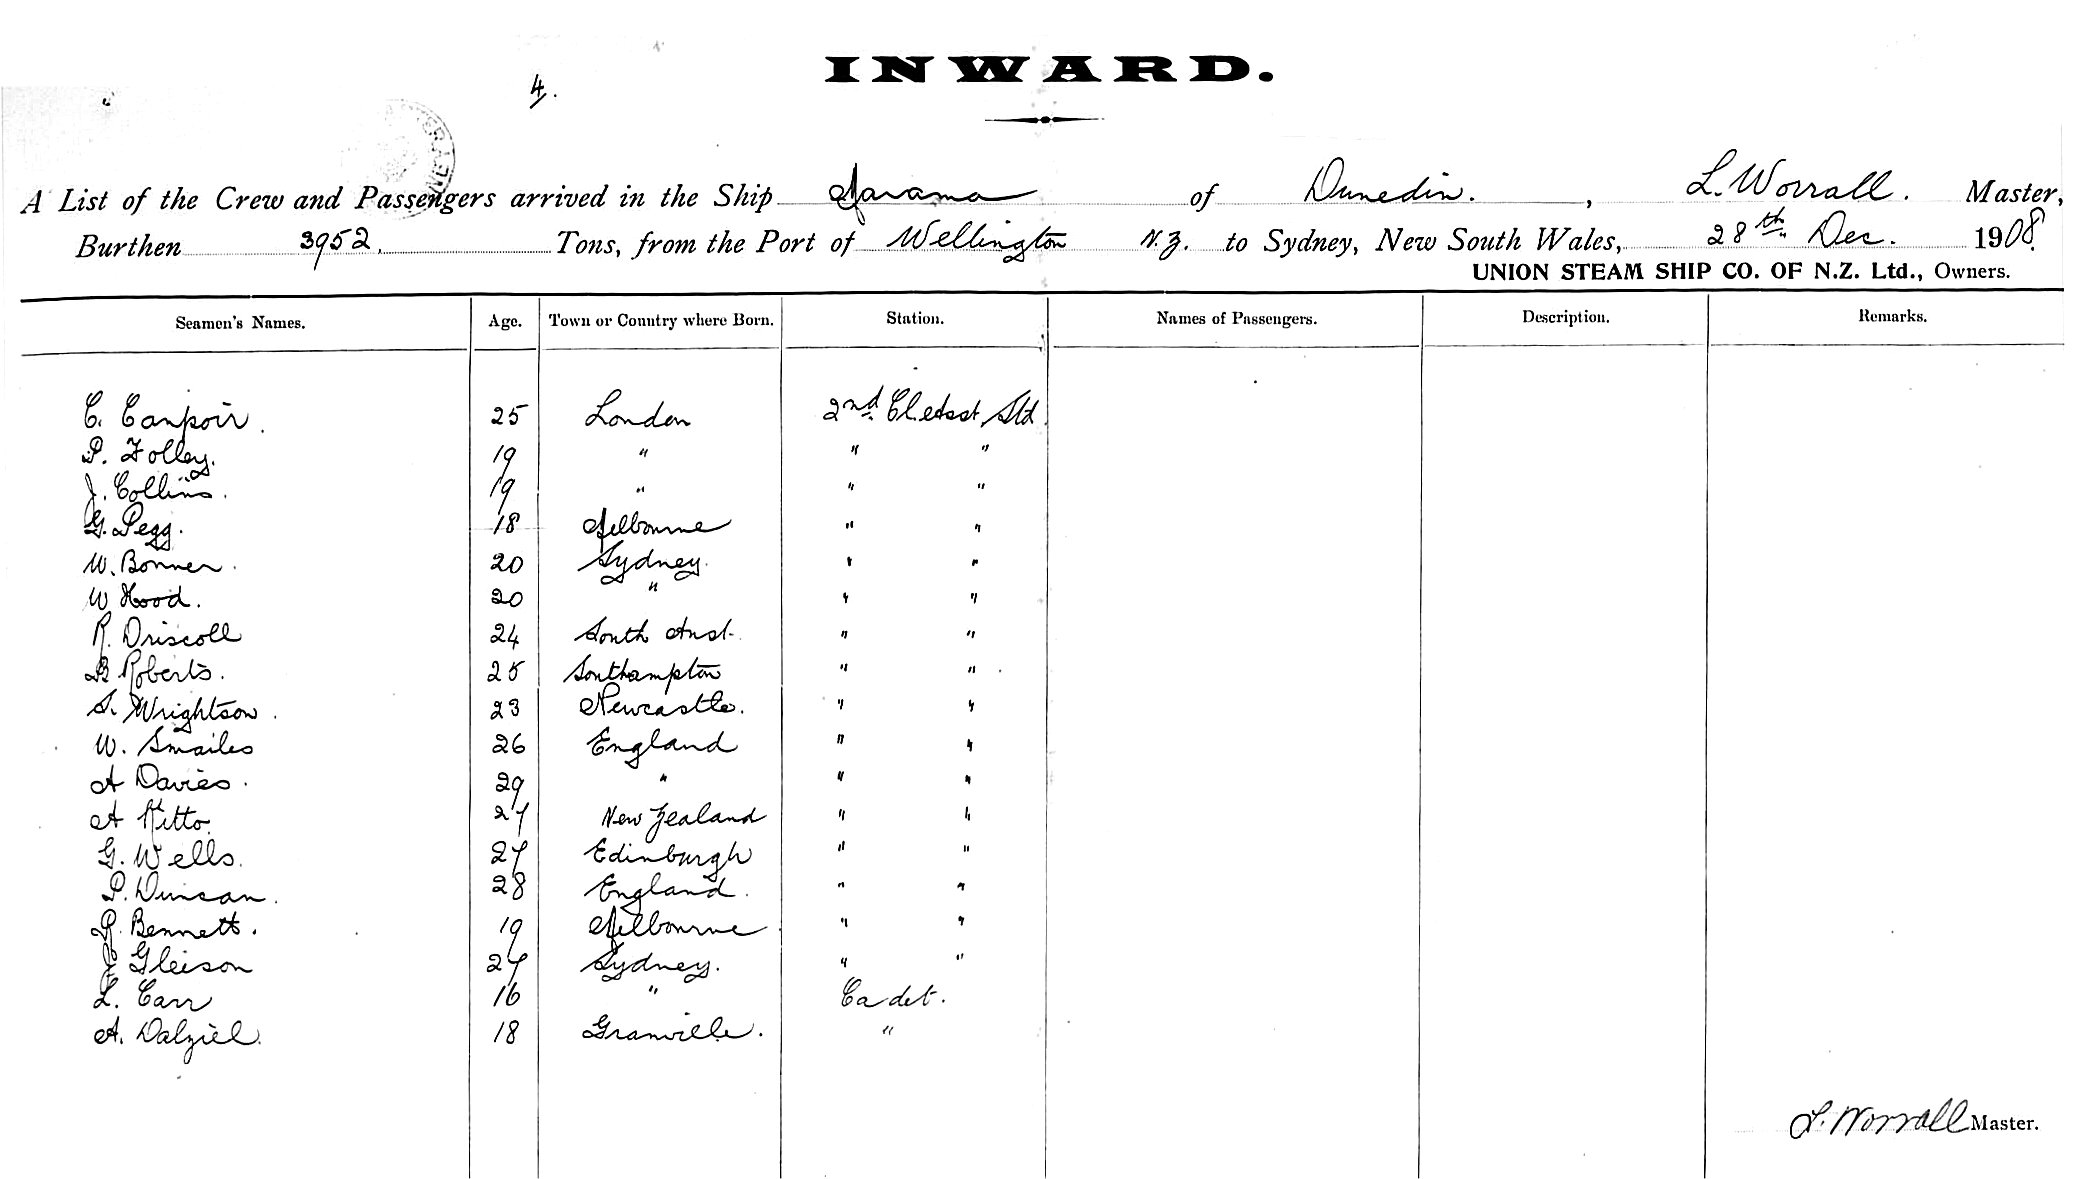 INWARD.
4.
A List of the Crew and Passengers arrived in the Ship Marama of Dunedin. , L. Worrall. Master,
Burthen 3952. Tons, from the Port of Wellington N.Z. to Sydney, New South Wales, 28th Dec. 1908.
UNION STEAM SHIP CO. OF N.Z. Ltd., Owners.
Seamen's Names. Age. Town or Country where Born. Station. Names of Passengers. Description. Remarks.
C. Canpoir. 25 London 2nd Cl. Asst. Std.
P. Folley. 19 " " "
J. Collins. 19 " " "
G. Pegg. 18 Melbourne " "
W. Bonner. 20 Sydney. " "
W Hood. 20 " " "
R. Driscoll 24 South Aust. " "
B Roberts. 25 Southampton " "
S. Wrightson. 23 Newcastle. " "
W. Smailes 26 England " "
A Davies. 29 " " "
A Kitto. 27 New Zealand " "
G. Wells. 27 Edinburgh " "
P. Duncan. 28 England. " "
R. Bennett. 19 Melbourne " "
J Gleison 27 Sydney. " "
L. Carr 16 " Cadet.
A. Dalziel. 18 Granville. "
L. Worrall Master.